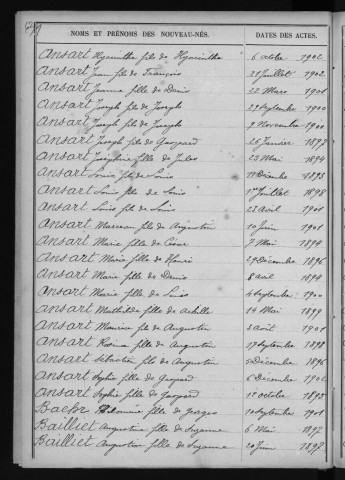 NOMS ET PRÉNOMS DES NOUVEAU-NÉS. DATES DES ACTES.
Ansart Hyacinthe fils de Hyacinthe 6 octobre 1902
Ansart Jean fils de François 21 Juillet 1902
Ansart Jeanne fille de Denis 22 Mars 1901
Ansart Joseph fils de Joseph 29 septembre 1900
Ansart Joseph fils de Joseph 2 Novembre 1900
Ansart Joseph fils de Gaspard 26 Janvier 1897
Ansart Joséphine fille de Jules 23 Mai 1894
Ansart Louis fils de Louis 11 Décembre 1893
Ansart Louis fils de Louis 1er Juillet 1898
Ansart Louis fils de Louis 21 avril 1901
Ansart Marceau fils de Augustin 10 Juin 1901
Ansart Marie fille de César 7 Mai 1894
Ansart Marie fille de Henri 29 Décembre 1896
Ansart Marie fille de Denis 8 avril 1894
Ansart Marie fille de Louis 4 septembre 1900
Ansart Mathilde fille de achille 14 Mai 1899
Ansart Maurice fils de Augustin 3 août 1901
Ansart fille de Augustin 17 septembre 1898
Ansart Sébastien fils de Augustin 5 Décembre 1896
Ansart Sophie fille de Gaspard 6 Décembre 1902
Ansart Sophie fille de Gaspard 12 octobre 1893
Philomène fille de Georges 10 septembre 1901
Bailliet Augustine fille de Suzanne 6 Mai 1897
Bailliet Augustin fils de Suzanne 20 Juin 1898